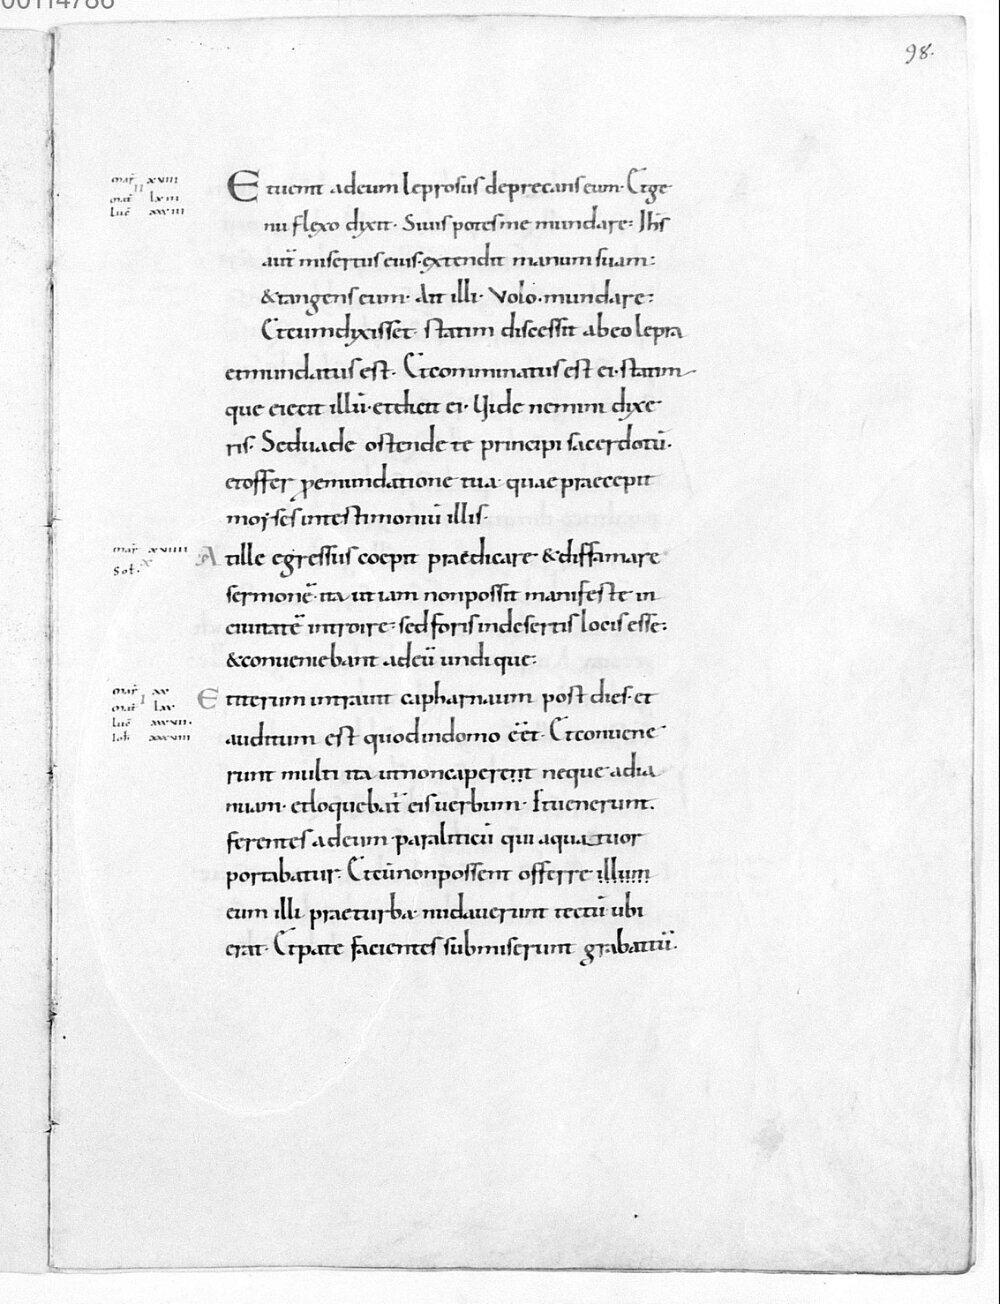 00114786
98.
mar̄ xviii
ii
mat̄ lxiii
luc̄ xxxiii
Et uenit ad eum leprosus deprecans eum· Et ge
nu flexo dixit· Si uis potes me mundare: Ih̄s
aut̄ misertus eius· extendit manum suam:
& tangens eum· Ait illi· Volo· mundare:
Et cum dixisset· statim discessit ab eo lepra
et mundatus est· Et comminatus est ei· statim
que eiecit illū· et dicit ei· Uide nemini dixe
ris· Sed uade ostende te principi sacerdotū·
et offer p emundatione tua· quae praecepit
moyses in testimoniū illis·
mar̄ xviiii
x
Sol·
At ille egressus coepit praedicare & diffamare
sermonē· ita ut iam non possit manifeste in
ciuitatē introire: sed foris in desertis locis esse:
& conueniebant ad eū undique:
mar̄ xx
i
mat̄ lxx
luc̄ xxxvii.
Ioh̄ xxxviii
Et iterum intrauit capharnaum post dies· et
auditum est quod in domo eēt· Et conuene
runt multi ita ut non caperent neque ad ia
nuam· et loquebat̄ eis uerbum· Et uenerunt·
ferentes ad eum paraliticū qui a quattuor
portabatur· Et cū non possent offerre illum
eum illi prae turba· nudauerunt tectū ubi
erat· Et pate facientes submiserunt grabattū·